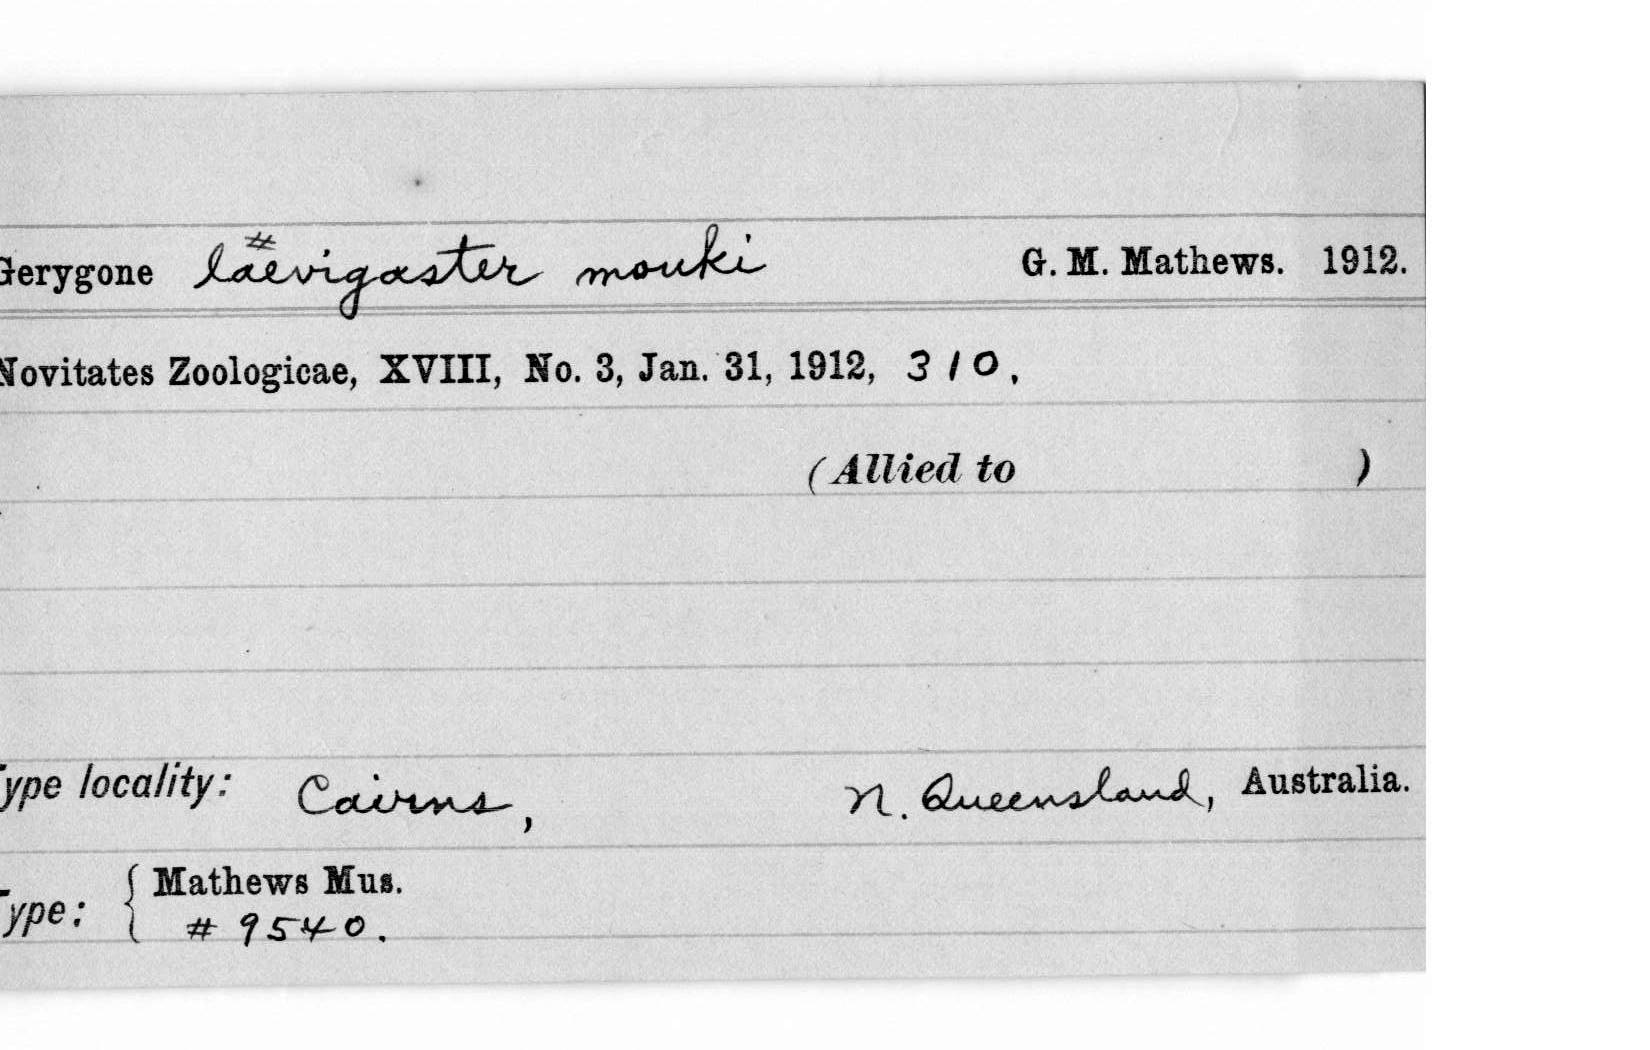 Gerygone laevigaster mouki G. M. Mathews. 1912.
#
Novitates Zoologicae, XVIII, No. 3, Jan. 31, 1912, 310.
(Allied to )
Type locality: Cairns, N. Queensland, Australia.
Type: { Mathews Mus.
# 9540.